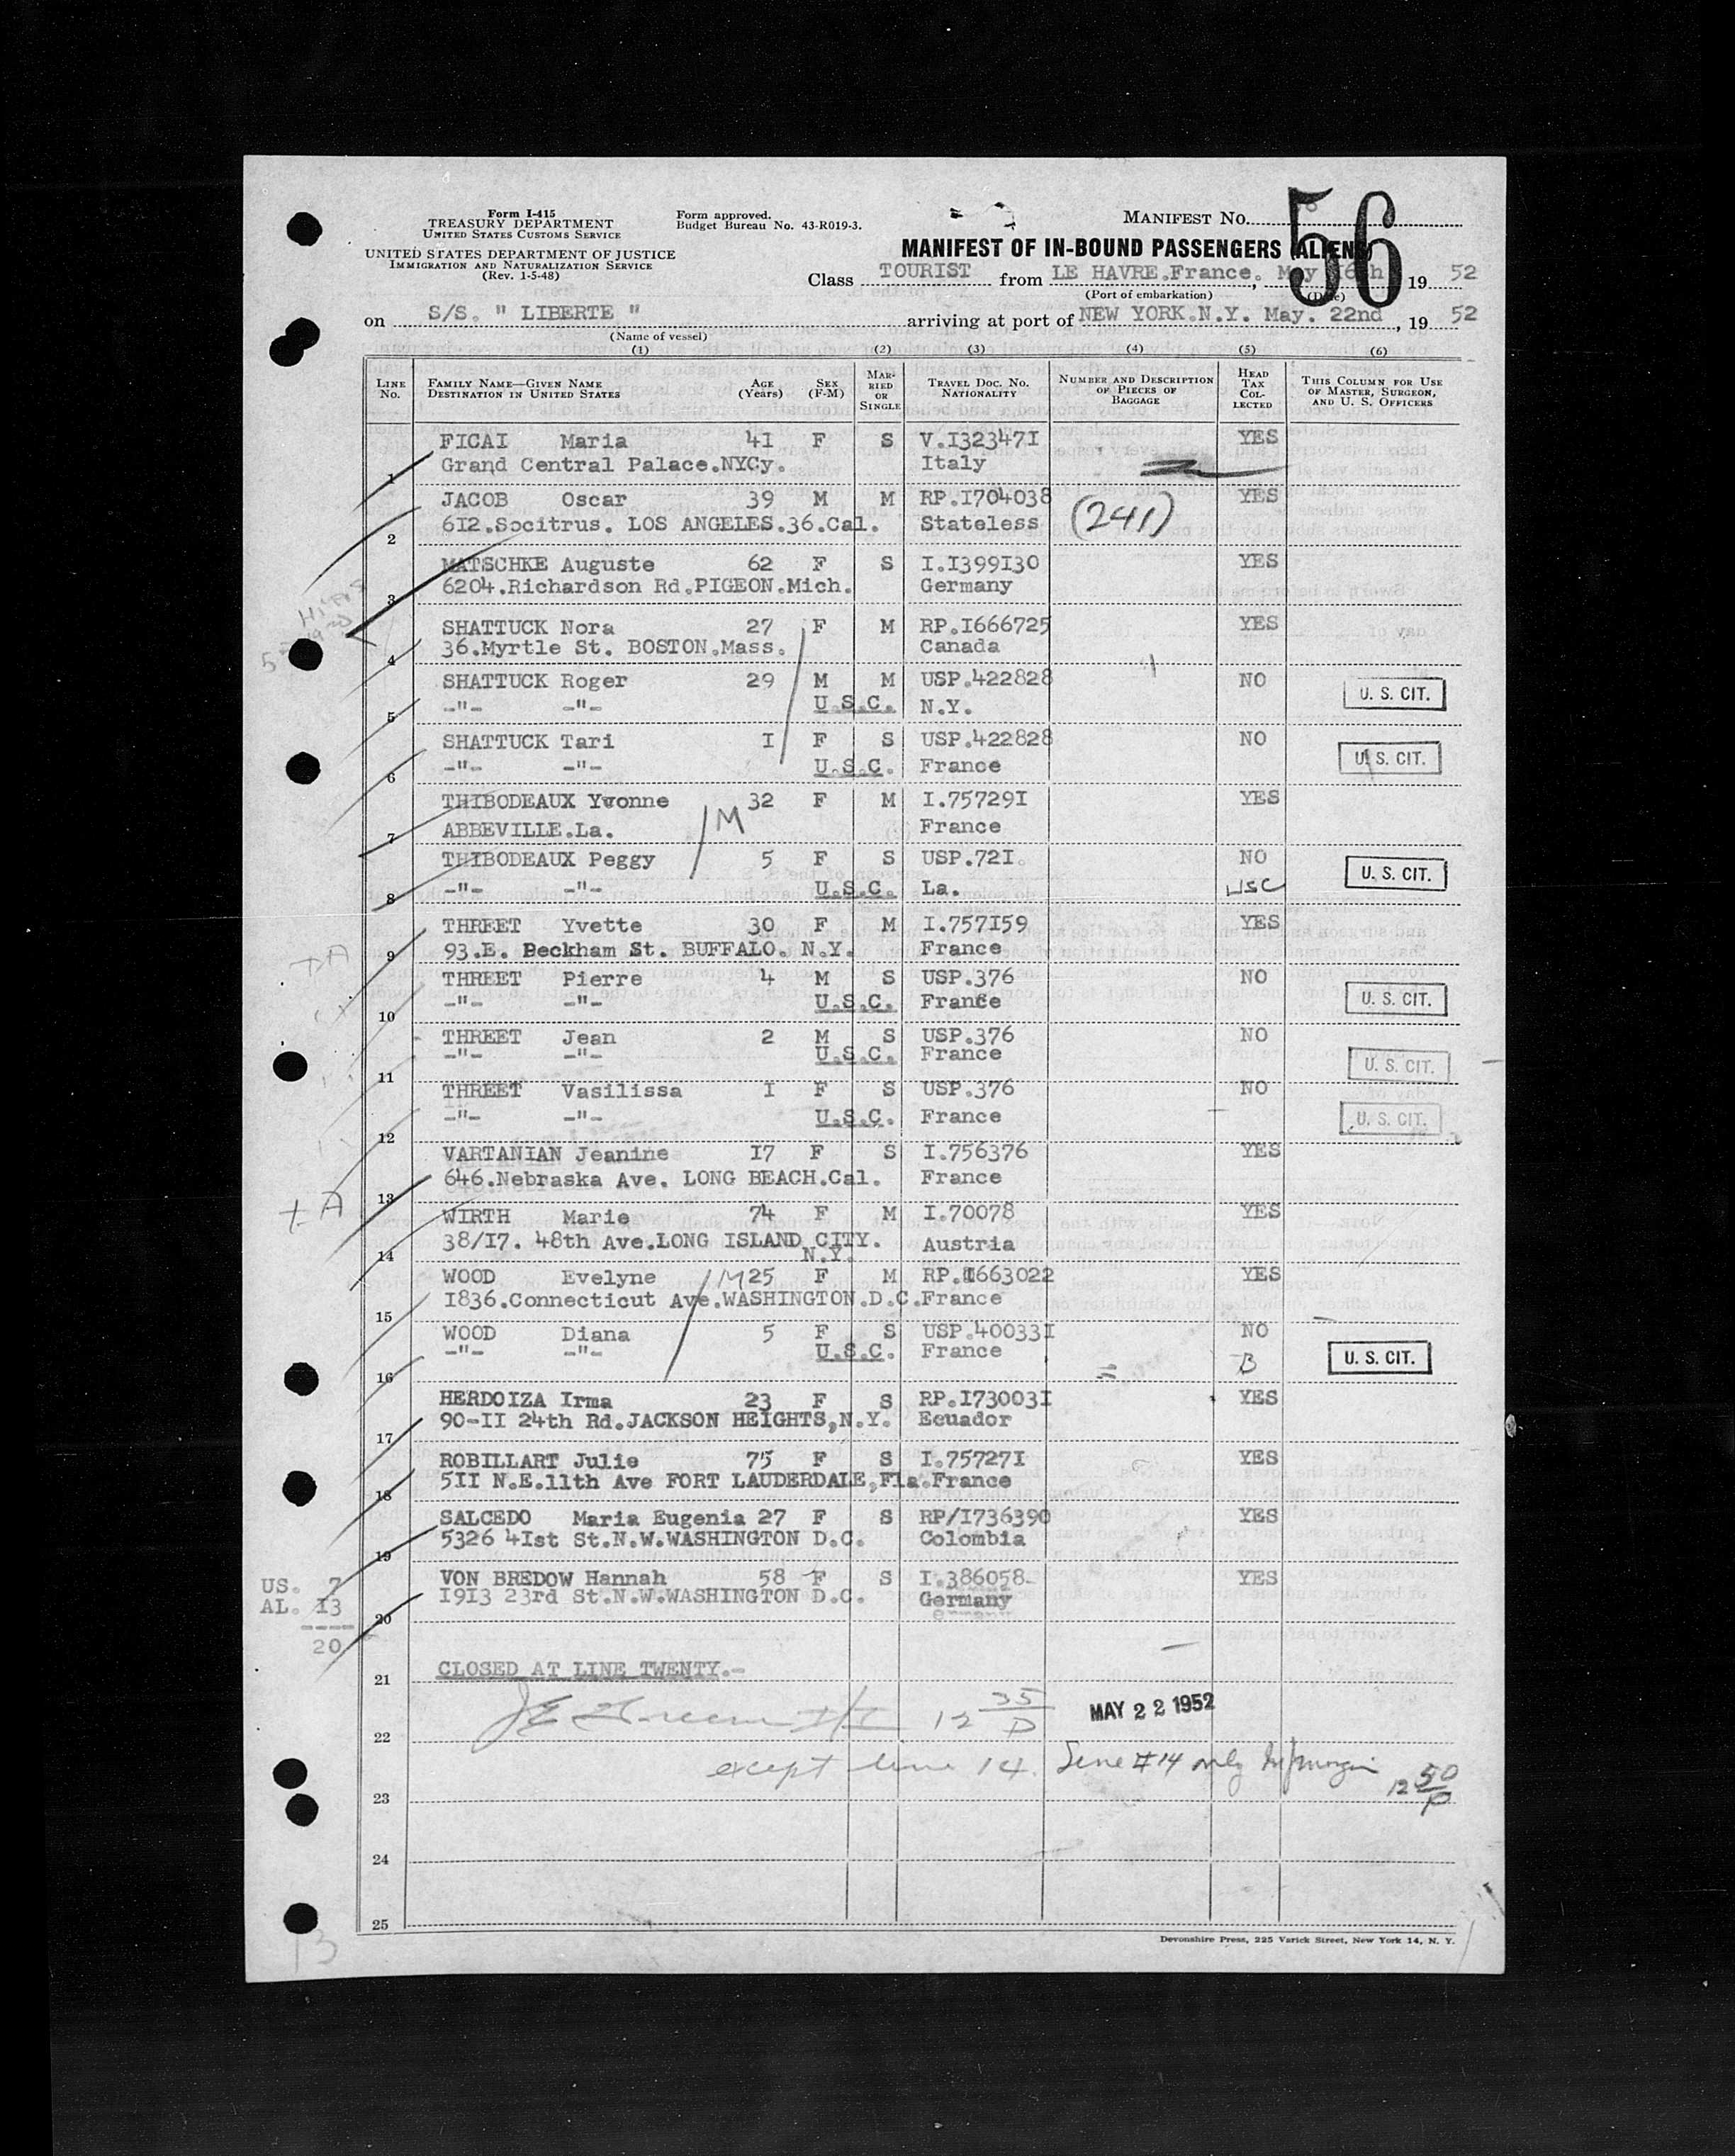 Form I-415
TREASURY DEPARTMENT
UNITED STATES CUSTOMS SERVICE
UNITED STATES DEPARTMENT OF JUSTICE
IMMIGRATION AND NATURALIZATION SERVICE
(Rev. 1-5-48)
Form approved.
Budget Bureau No. 43-R019-3.
MANIFEST NO. 56
MANIFEST OF IN-BOUND PASSENGERS (ALIENS)
Class TOURIST from LE HAVRE.France. May 16th 19 52
(Port of embarkation) (Date)
on S/S. " LIBERTE " arriving at port of NEW YORK.N.Y. May. 22nd, 19 52
(Name of vessel)
(1) (2) (3) (4) (5) (6)
LINE No. FAMILY NAME—GIVEN NAME DESTINATION IN UNITED STATES AGE (Years) SEX (F-M) MARRIED OR SINGLE TRAVEL DOC. NO. NATIONALITY NUMBER AND DESCRIPTION OF PIECES OF BAGGAGE HEAD TAX COLLECTED THIS COLUMN FOR USE OF MASTER, SURGEON, AND U. S. OFFICERS
FICAI Maria 41 F S V.I32347I YES
1 Grand Central Palace.NYCy. Italy
JACOB Oscar 39 M M RP.I704038 (241) YES
2 6I2.Socitrus. LOS ANGELES.36.Cal. Stateless
MATSCHKE Auguste 62 F S I.I399I30 YES
3 6204.Richardson Rd.PIGEON.Mich. Germany
SHATTUCK Nora 27 F M RP.I666725 YES
4 36.Myrtle St. BOSTON.Mass. Canada
SHATTUCK Roger 29 M M USP.422828 NO U. S. CIT.
5 -"- -"- U.S.C. N.Y.
SHATTUCK Tari I F S USP.422828 NO U. S. CIT.
6 -"- -"- U.S.C. France
THIBODEAUX Yvonne M 32 F M I.75729I YES
7 ABBEVILLE.La. France
THIBODEAUX Peggy 5 F S USP.72I. NO U. S. CIT.
8 -"- -"- U.S.C. La. USC
THREET Yvette 30 F M I.757I59 YES
9 93.E. Beckham St. BUFFALO. N.Y. France
THREET Pierre 4 M S USP.376 NO U. S. CIT.
10 -"- -"- U.S.C. France
THREET Jean 2 M S USP.376 NO
11 -"- -"- U.S.C. France U. S. CIT.
THREET Vasilissa I F S USP.376 NO
12 -"- -"- U.S.C. France U. S. CIT.
VARTANIAN Jeanine I7 F S I.756376 YES
13 646.Nebraska Ave. LONG BEACH.Cal. France
WIRTH Marie 74 F M I.70078 YES
14 38/I7. 48th Ave.LONG ISLAND CITY. Austria
N.Y.
WOOD Evelyne M 25 F M RP.I663022 YES
15 I836.Connecticut Ave.WASHINGTON.D.C.France
WOOD Diana 5 F S USP.40033I NO
16 -"- -"- U.S.C. France B U. S. CIT.
HERDOIZA Irma 23 F S RP.I73003I YES
17 90-II 24th Rd.JACKSON HEIGHTS,N.Y. Ecuador
ROBILLART Julie 75 F S I.75727I YES
18 5II N.E.llth Ave FORT LAUDERDALE,Fla.France
SALCEDO Maria Eugenia 27 F S RP/I736390 YES
19 5326 4Ist St.N.W.WASHINGTON D.C. Colombia
VON BREDOW Hannah 58 F S I.386058 YES
20 I9I3 23rd St.N.W.WASHINGTON D.C. Germany
US. 7
AL. I3
----
20
21 CLOSED AT LINE TWENTY.-
22 12 35 P MAY 22 1952
23 except line 14. Line #14 only 12 50 P
24
25
Devonshire Press, 225 Varick Street, New York 14, N. Y.